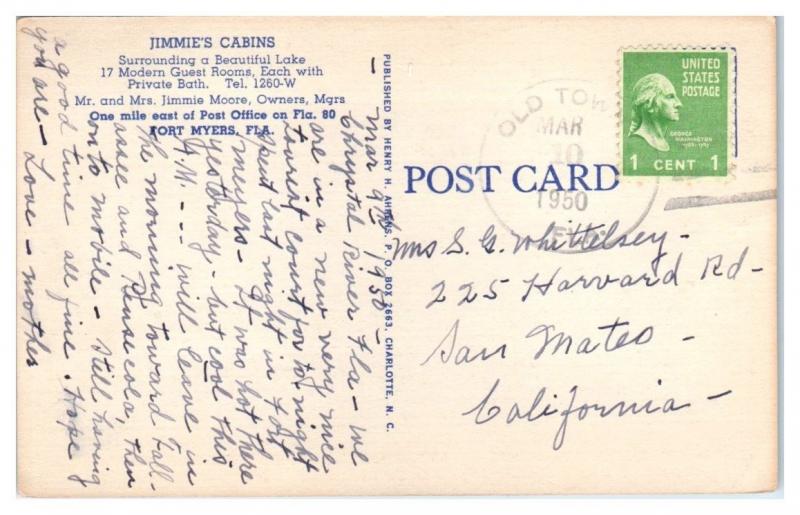 JIMMIE'S CABINS
Surrounding a Beautiful Lake
17 Modern Guest Rooms, Each with
Private Bath. Tel. 1260-W
Mr. and Mrs. Jimmie Moore, Owners, Mgrs
One mile east of Post Office on Fla. 80
FORT MYERS, FLA.
Mar 9th 1950 -
Chrystal River Fla - we
are in a new very nice
tourist court for to night
spent last night in Fort
Meyers - It was hot there
yesterday - but cool this
A.M. - - - will leave in
the morning toward Tall-
assee and Pensecola, then
on to mobile - Still having
a good time all fine. Hope
you are - Love - mother
PUBLISHED BY HENRY H. AHRENS, P. O. BOX 2663, CHARLOTTE, N. C.
POST CARD
OLD TOWN
MAR
10
1950
FLA.
UNITED
STATES
POSTAGE
GEORGE
WASHINGTON
1 CENT 1
Mrs S. G. Whittelsey -
225 Harvard Rd -
San Mateo -
California -